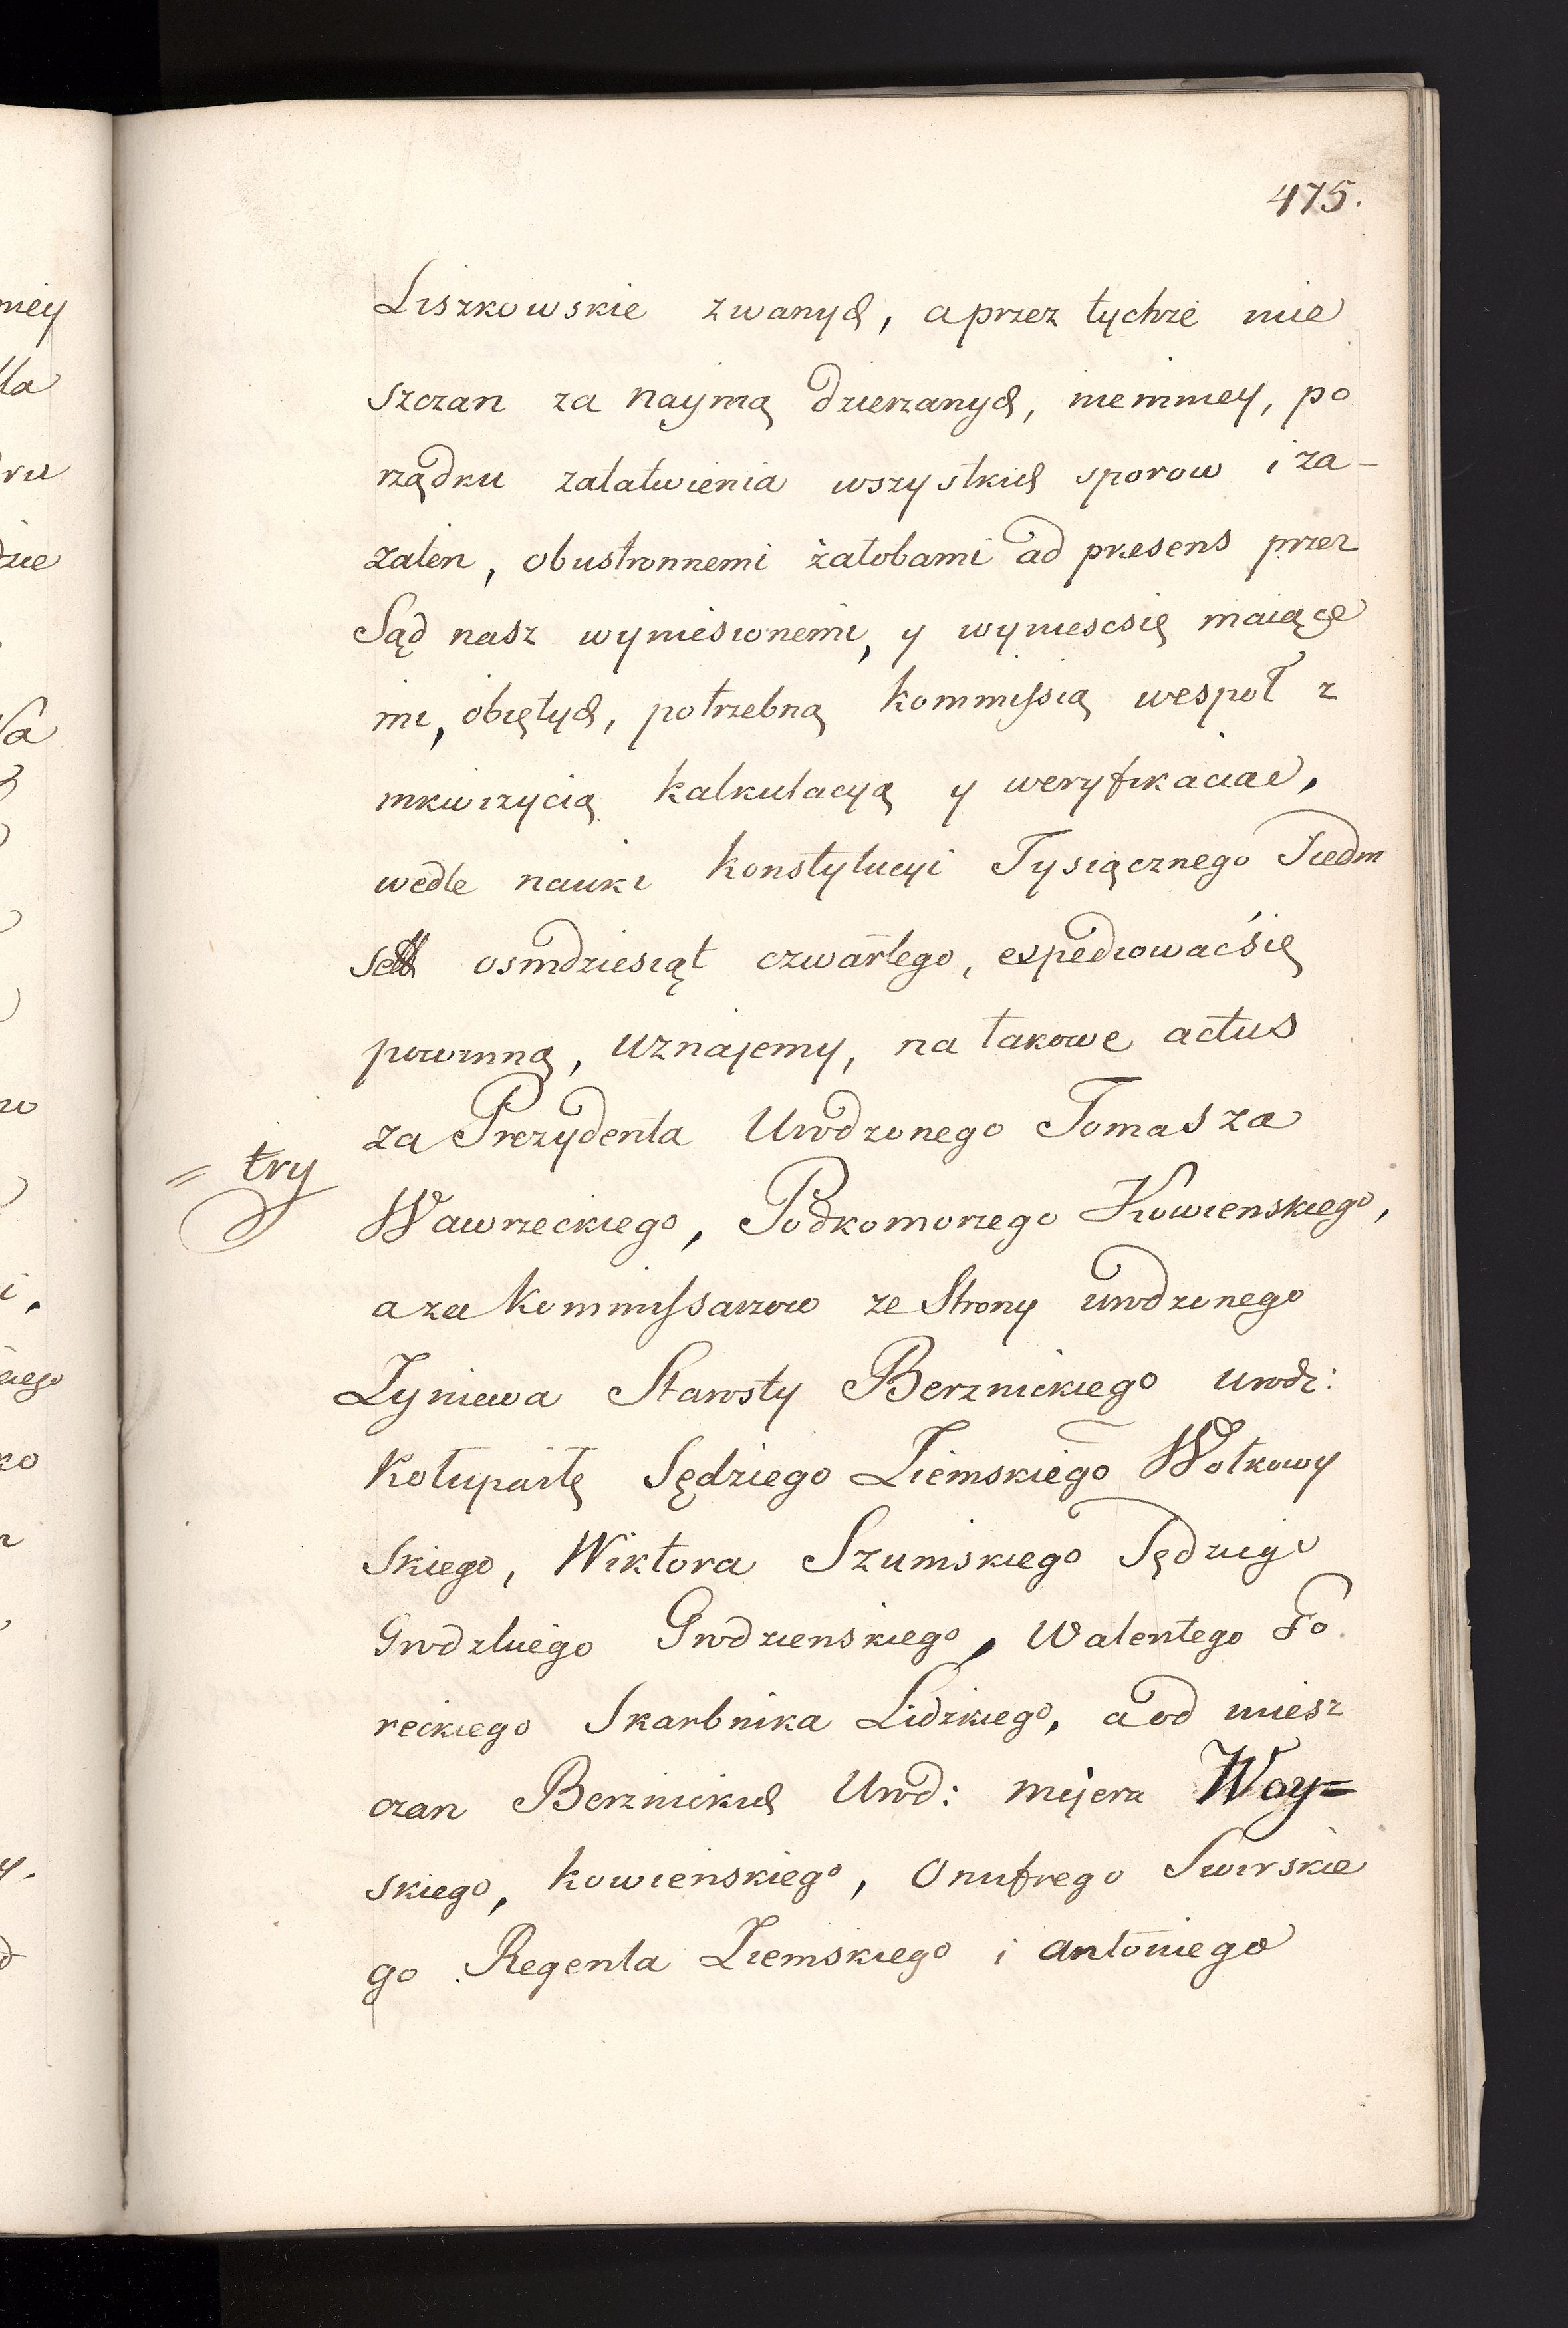 475.
Liszkowskie zwanych, a przez tychże mie
szczan za naymą dzierzanych, niemniey, po
rządku załatwienia wszystkich sporow i za-
zaleń, obustronnemi żałobami ad presens przez
Sąd nasz wyniesionemi, y wyniescsię maiące
mi, obiętych, potrzebną kommissią wespoł z
inkwizycią kalkulacyą y weryfikaciae,
wedle nauki konstytucyi Tysiącznego Siedm
set osmdziesiąt czwartego, expediowaćsię
powinną, uznajemy, na takowe actus
za Prezydenta Urodzonego Tomasza
= try
Wawrzeckiego, Podkomorzego Kowienskiego,
a za kommissarzow ze Strony urodzonego
Zyniewa Starosty Berznickiego urodz:
Kołupaiłę Sędziego Ziemskiego Wołkowy
skiego, Wiktora Szumskiego Sędzigo
Grodzkiego Grodzienskiego, Walentego Go
reckiego Skarbnika Lidzkiego, a od miesz
czan Berznickich Urod: mijera Woy=
skiego, kowieńskiego, Onufrego Swirskie
go Regenta Ziemskiego i Antoniego
mey